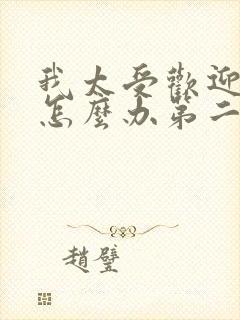 我太受歡迎
怎麼办第二
趙璧